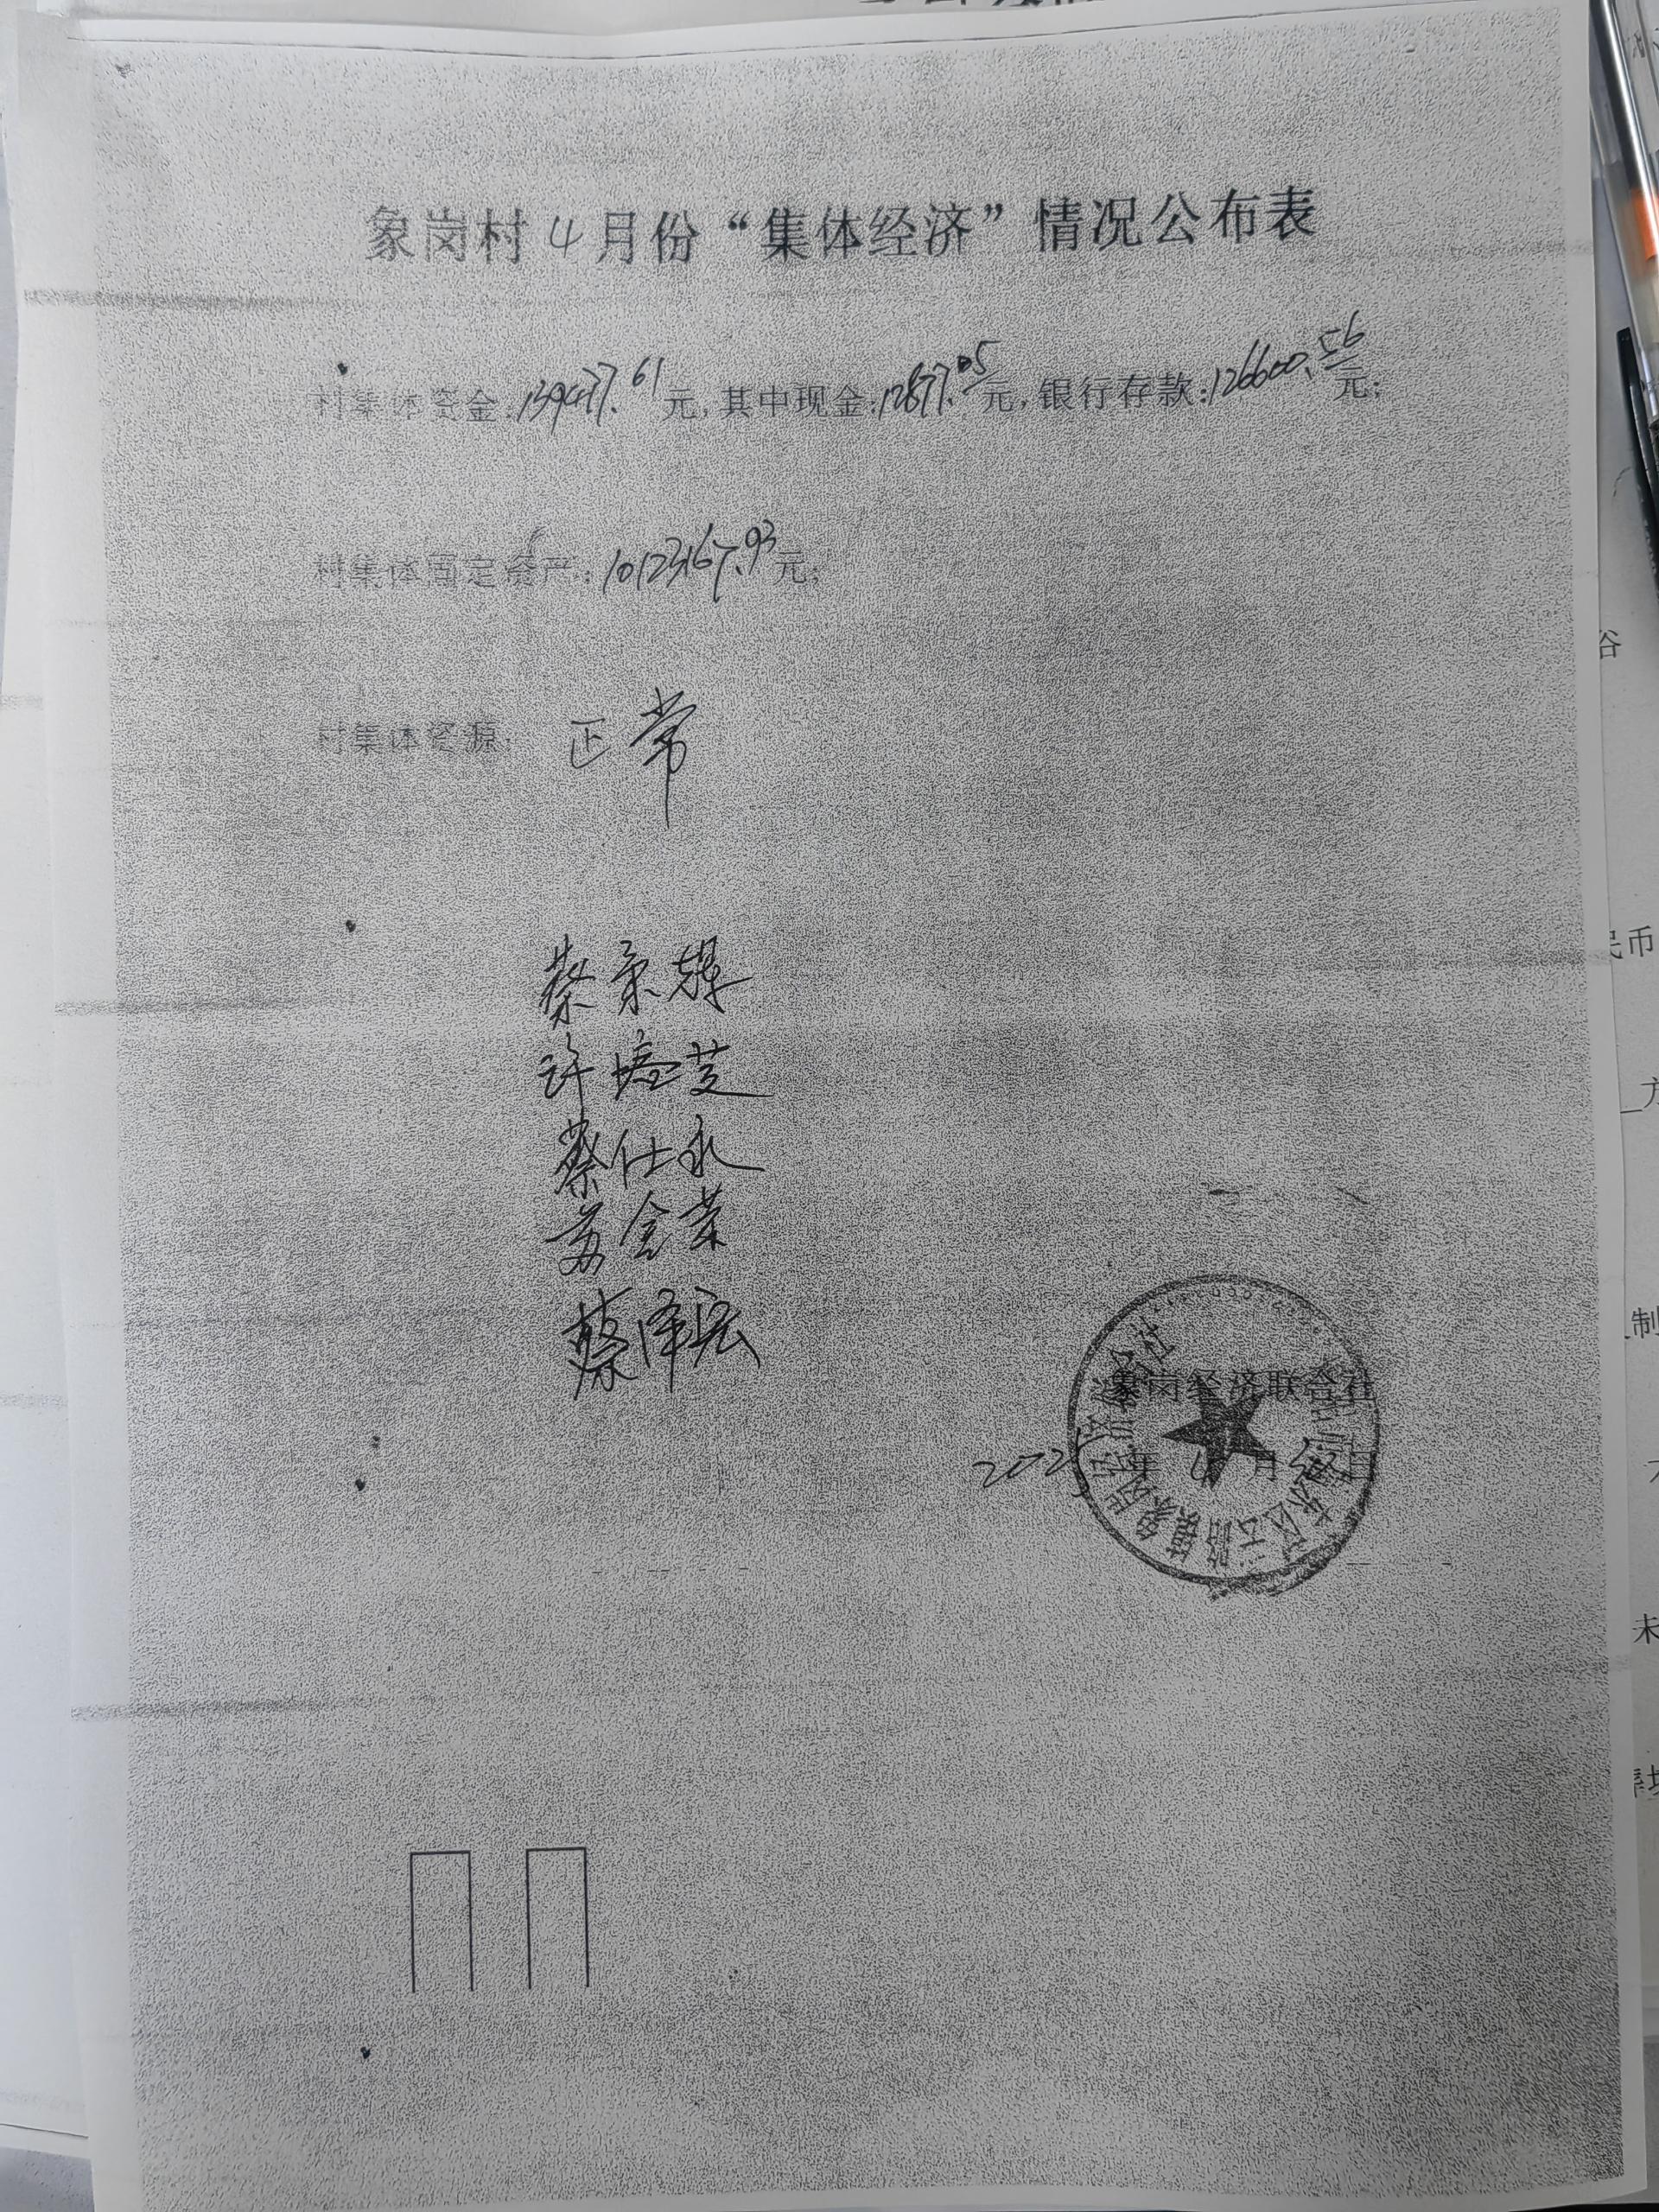 象岗村4月份“集体经济”情况公布表
村集体资金:139477.61元,其中现金:12877.05元,银行存款:126600.56元;
村集体固定资产:1012367.93元;
村集体资源: 正常
蔡荣辉
许
蔡仕永
苏金荣
蔡泽宏
象岗经济联合社
年 4 月 日
谷
民币
方
制
未